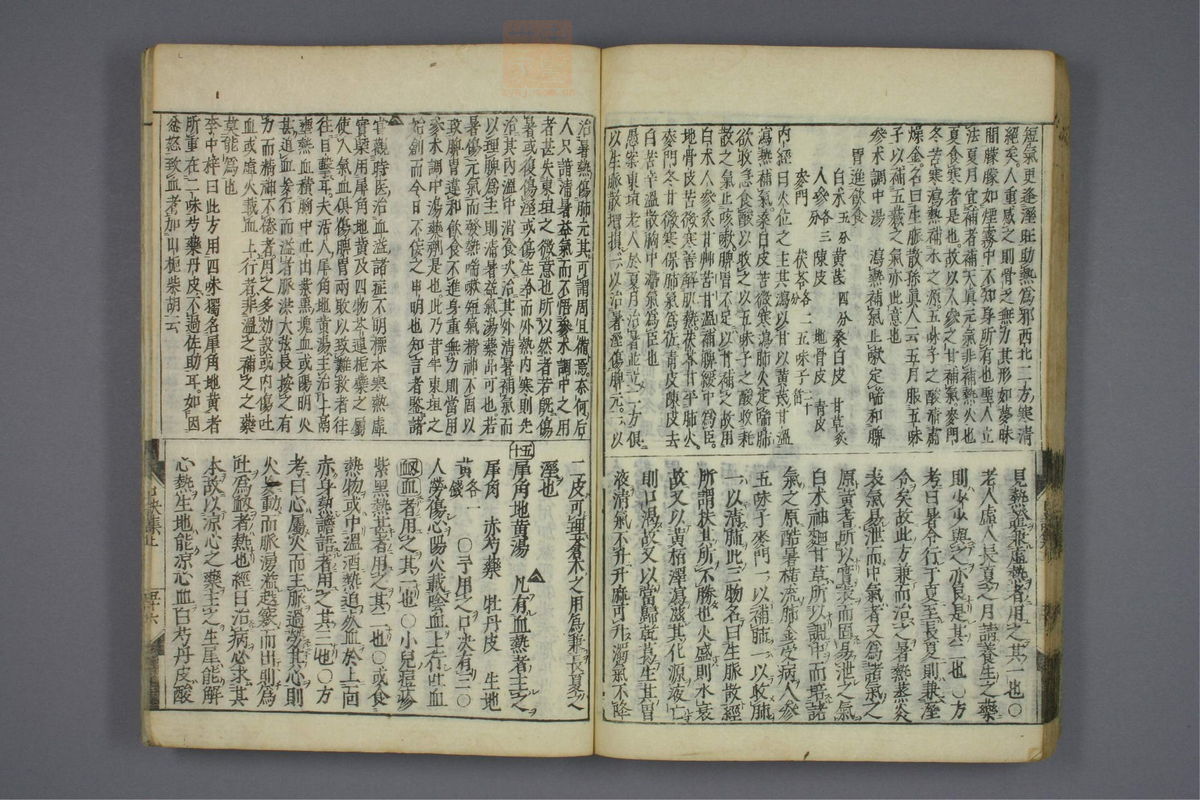 短氣更逢溼旺助熱爲邪西北二方寒清
經矣人重感之則骨之無力其形如夢昧
間朦朦如煙霧中不知身所有也聖人立
法夏月宜補者補天眞元氣非補熱火也
夏食寒者是也故以人參之甘補氣麥門
冬苦寒瀉熱補水之源五味子之酸清肅
燥金名曰生脈散孫眞人云五月服五味
子以補五藏之氣亦此意也
參朮調中湯 瀉熱補氣止嗽定喘和脾
胃進飲食
白朮五分 黄芪四分 桑白皮 甘草炙
人參各三 陳皮 地骨皮 青皮
麥門 茯苓各二分 五味子二十箇
内經曰火位之主其瀉以甘以黄芪甘溫
瀉熱補氣桑白皮苦微寒瀉肺火定喘肺
欲收急食酸以收之以五味子之酸收耗
散之氣止咳嗽脾胃不足以甘補之故用
白朮人參炙甘艸苦甘溫補脾緩中爲臣
地骨皮苦微寒善解肌熱茯苓甘平降肺火
麥門冬甘微寒保肺氣爲佐青皮陳皮去
白苦辛溫散胸中滯氣爲臣也
愚案東垣老人於夏月治暑並立二方俱
以生脈散增損一以治暑溼傷脾元一以
見熱蒸兼虛熱者用之其一也〇
老人虛人長夏之月請養生之藥
則少少與之亦良是其二也〇方
考曰暑令行于夏至長夏則兼溼
令矣故此方兼而治之暑熱蒸炎
表氣易泄而中氣者又爲諸氣之
原黄耆所以實表而固易泄之氣
白朮神麴甘草所以調中而培諸
氣之原酷暑橫流肺金受病人參
五味子麥門一以補肺一以收肺
一以清肺此三物名曰生脈散經
所謂扶其所不勝也火盛則水衰
故又以黄栢澤瀉滋其化源液亡
則口渴故又以當歸乾葛生其胃
液清氣不升升麻可升濁氣不降
治暑熱傷肺元其可謂周且備焉奈何后
人只諳清暑益氣而不悟參朮調中之用
者甚失東垣之微意也所以然者若旣傷
暑或復傷溼或傷生冷而外熱内寒則先
治其内溫中消食次治其外清暑補氣而
以理脾爲主則清暑益氣湯藥品可也若
只傷元氣而發熱喘嗽短氣精神不固以
致脾胃違和飲食不進身重無力則當用
參朮調中湯藥劑是也此乃昔年東垣之
始創而今日不佞之申明也知言者鑒諸
嘗觀時医治血溢諸症不明標本寒熱虛
實槩用犀角地黄及四物芩連梔藥之屬
使人氣血俱傷脾胃兩敗以致難救者往
往目擊耳夫活人犀角地黄湯主治上焦
壅熱血積胸中吐出紫黑塊血或陽明火
甚迫血妄行而溢者脈洪大弦長按之有
力而精神不倦者用之多効設或内傷吐
血或虛火載血上行者非溫之補之之藥
莫能爲也
李中梓曰此方用四味獨名犀角地黄者
所重在二味芍藥丹皮不過佐助耳如因
忿怒致血者加山梔柴胡云
二皮可理蒼朮之用爲兼長夏之
溼也
五十 犀角地黄湯 凡有血熱者主之
犀角 赤芍藥 牡丹皮 生地
黄各一錢 〇予用之口決有三〇
人勞傷心陽火載陰血上行吐血
衂血者用之其一也〇小兒痘疹
紫黑熱甚者用之其二也〇或食
熱物或中溫酒熱迫然血於上面
赤身熱譫語者用之其三也〇方
考曰心屬火而主脈過勞其心則
火妄動而脈湧溢越竅而出則爲
吐爲衂者熱也經曰治病必求其
本故以涼心之藥主之生犀能解
心熱生地能涼心血白芍丹皮酸